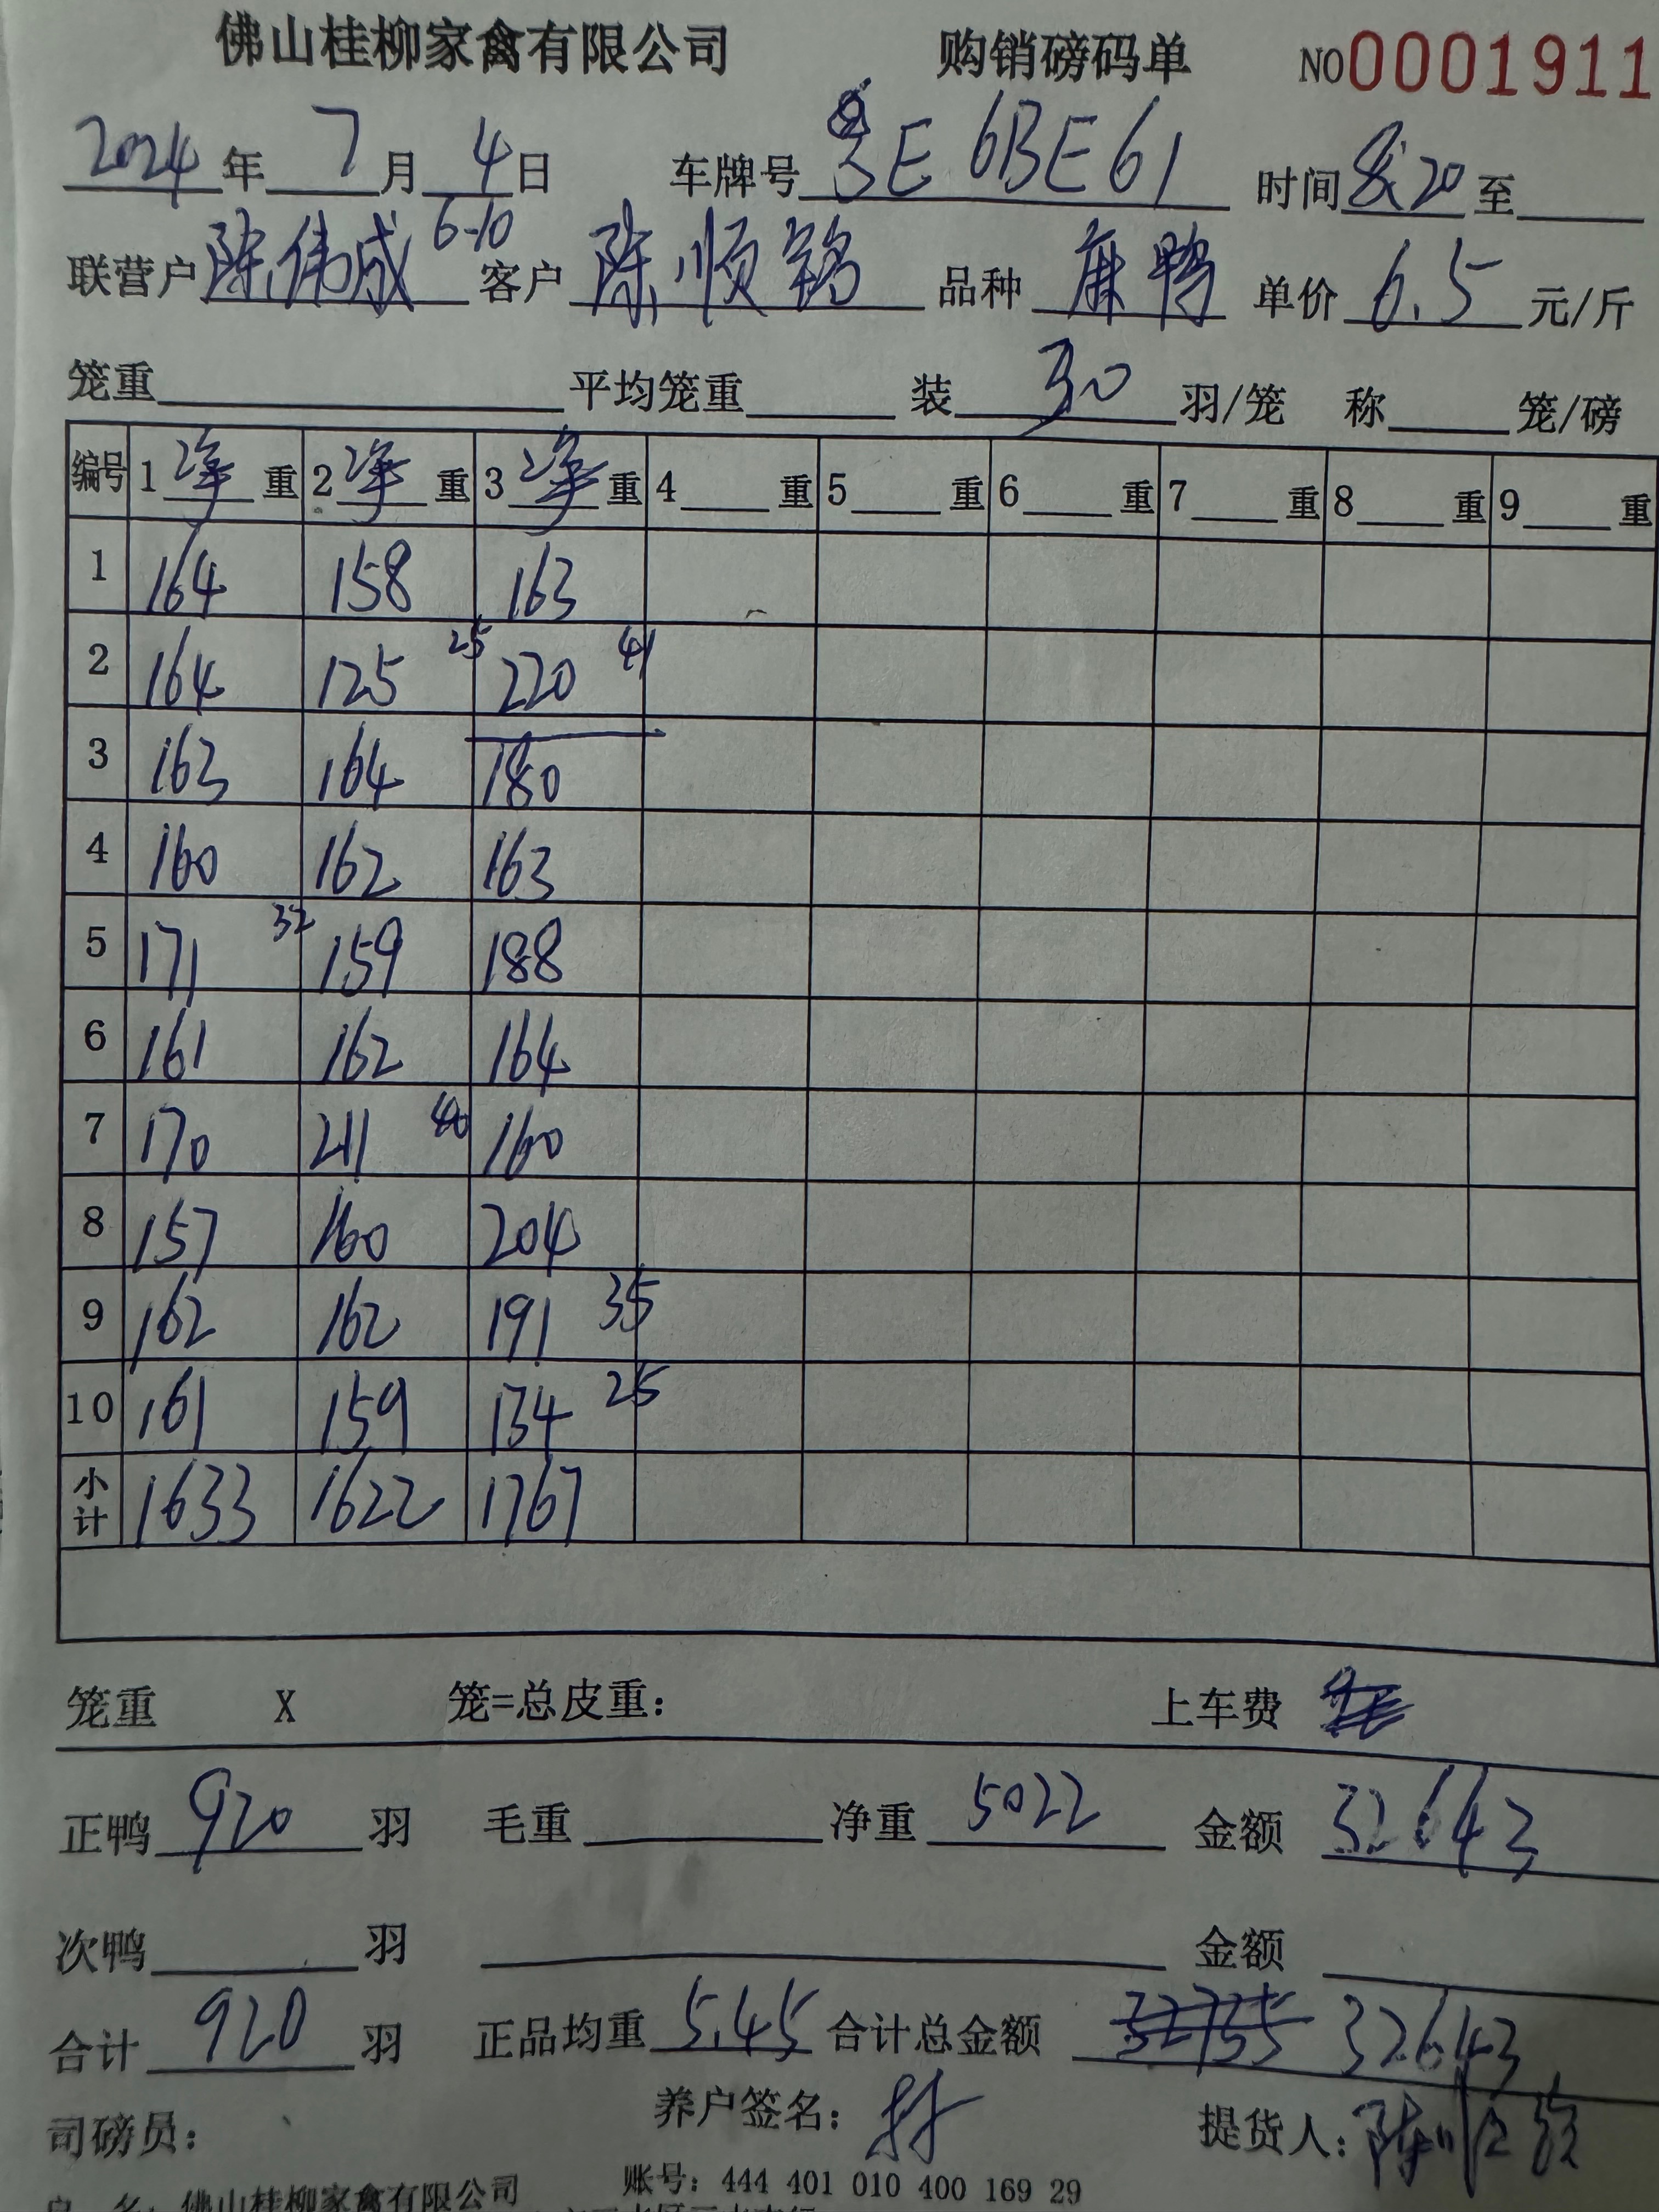 佛山桂柳家禽有限公司 购销磅码单 NO0001911
2024年7月4日 车牌号 E 6BE61 时间8:20至
联营户陈伟成 6-10 客户陈顺 品种麻鸭 单价6.5元/斤
笼重 平均笼重 装30羽/笼 称 笼/磅
编号 1净重 2净重 3净重 4 重 5 重 6 重 7 重 8 重 9 重
1 164 158 163
2 164 125 25 220 41
3 163 164 180
4 160 162 163
5 171 32 159 188
6 161 162 164
7 170 211 40 160
8 157 160 204
9 162 162 191 35
10 161 159 134 25
小计 1633 1622 1767
笼重 X 笼=总皮重： 上车费
正鸭920羽 毛重 净重5022 金额32643
次鸭 羽 金额
合计920羽 正品均重5.45 合计总金额 32755 32643
养户签名：
司磅员： 提货人：陈
户 名：佛山桂柳家禽有限公司 账号：444 401 010 400 169 29